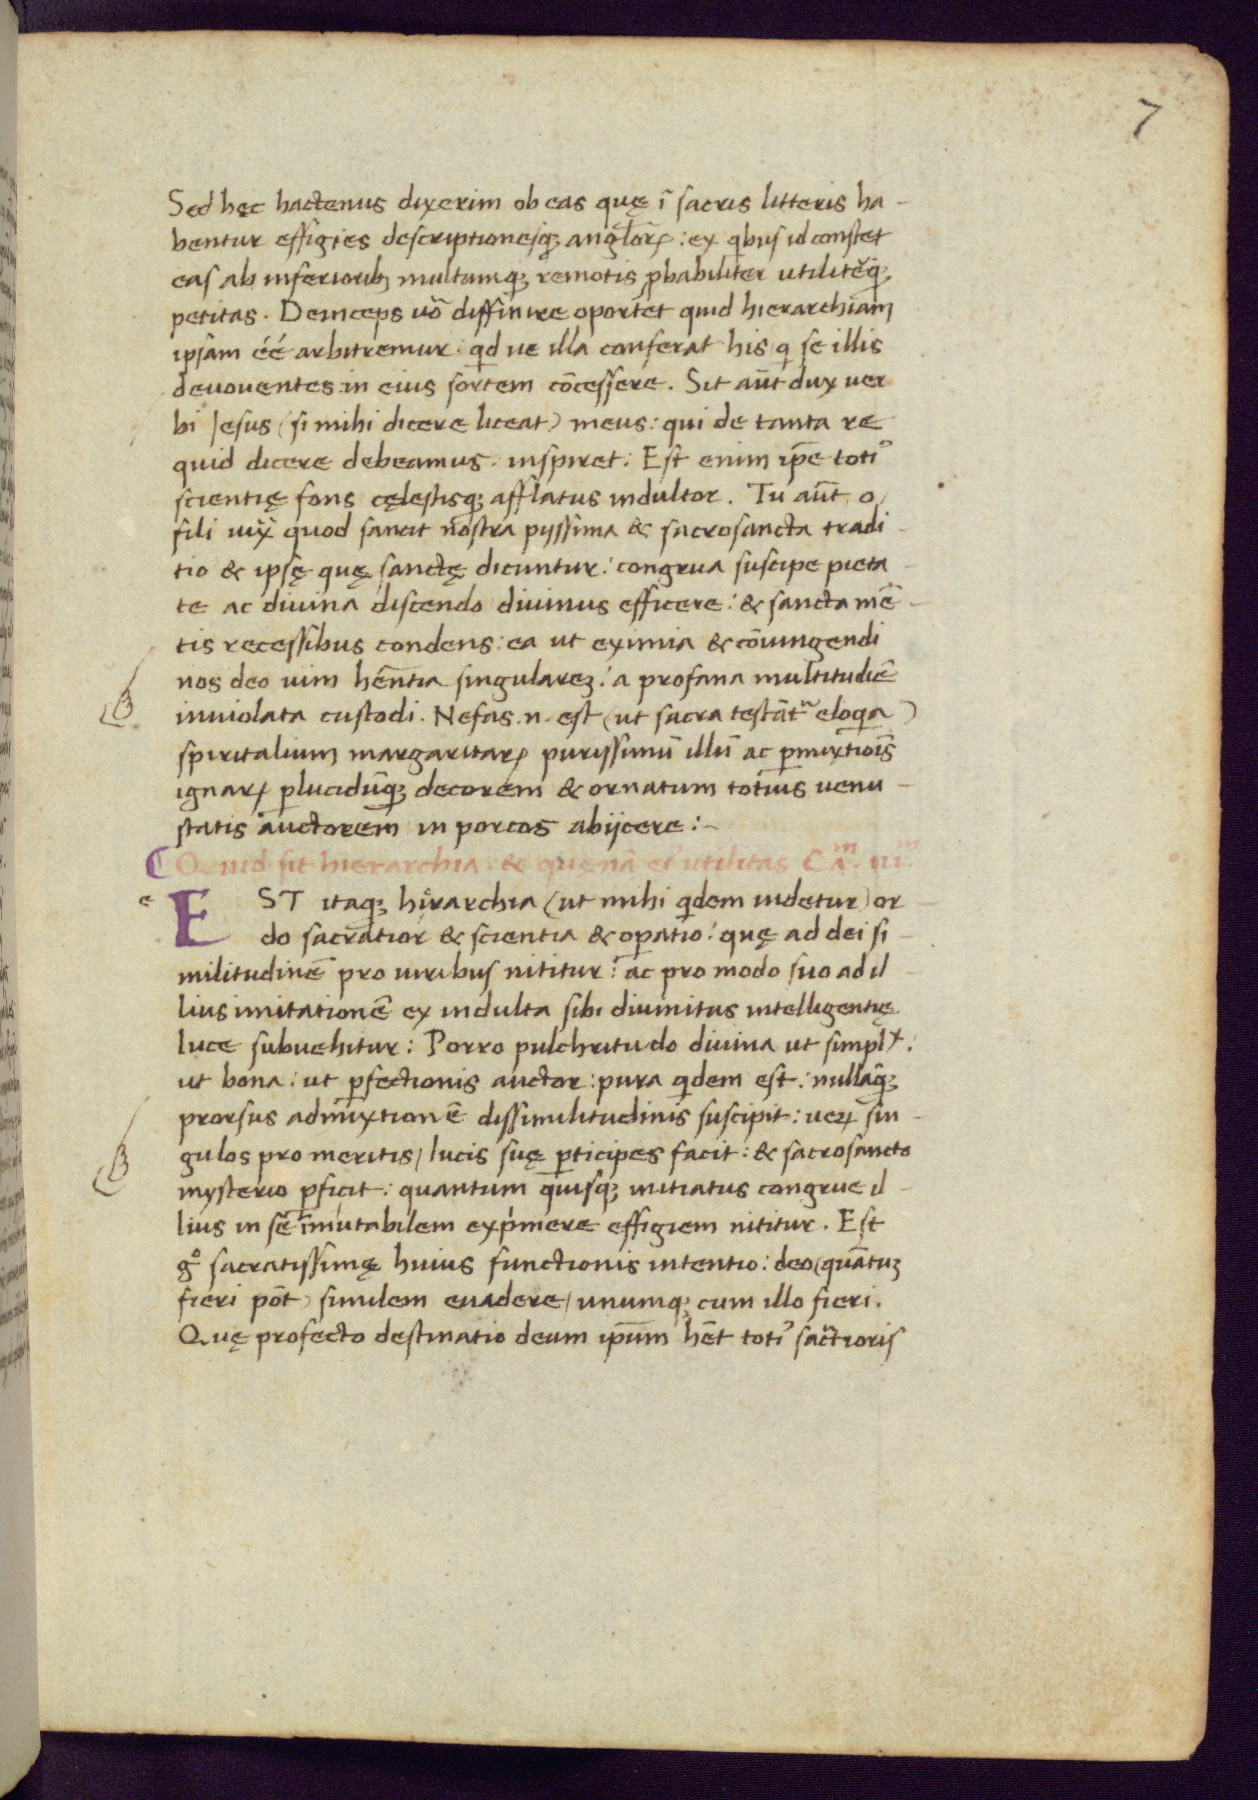 7
Sed hęc hactenus dixerim ob eas quę ī sacris litteris ha-
bentur effigies descriptionesq; angl̃orꝝ: ex qbus id constet
eas ab inferiorib; multumq; remotis ꝓbabiliter utilit̃eq;
petitas. Deinceps uõ diffinire oportet quid hierarchiam
ipsam éé arbitremur. qd ue illa conferat his q se illis
deuouentes: in eius sortem cōcessere. Sit aūt dux uer
bi Iesus (si mihi dicere liceat) meus: qui de tanta re
quid dicere debeamus. inspiret: Est enim ip̄e totiꝰ
scientię fons cęlestisq; afflatus indultor. Tu aūt o/
fili iux̃ quod sancit nostra pijssima & sacrosancta tradi-
tio & ipsę quę sanctę dicuntur: congrua suscipe pieta-
te ac diuina discendo diuinus efficere: & sancta mē-
tis recessibus condens: ea ut eximia & cōiungendi
nos deo uim hēntia singularez: a profana multitudiē
inuiolata custodi. Nefas .n. est (ut sacra testāt̃ eloqa)
spiritalium margaritarꝝ purissimū illū ac ꝑmixtiōis
ignarꝝ ꝑlucidūq; decorem & ornatum totius uenu-
statis auctorem in porcos abijcere:-
Quid sit hierarchia. & quęnā eiꝰ utilitas Cã.ᵐ iii.ᵐ
e EST itaq; hi̊rarchia (ut mihi qdem uidetur) or-
do sacratior & scientia & oꝑatio: quę ad dei si-
militudinē pro uiribus nititur: ac pro modo suo ad il-
lius imitationē ex indulta sibi diuinitus intelligentię
luce subuehitur: Porro pulchritudo diuina ut simplˣ:
ut bona: ut ꝑfectionis auctor: pura qdem est: nullāq;
prorsus admixtionē dissimilitudinis suscipit: uerꝝ sin-
gulos pro meritis/ lucis suę ꝑticipes facit: & sacrosancto
mysterio ꝑficit: quantum quisq; initiatus congrue il-
lius in sē imutabilem exp̍mere effigiem nititur. Est
g̊ sacratissimę huius functionis intentio: deo (quātuz
fieri pōt) similem euadere/ unumq; cum illo fieri.
Quę profecto destinatio deum ip̄um hēt totiꝰ sañctioris